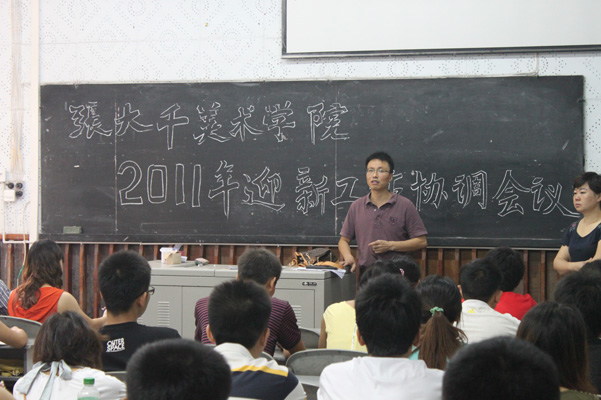 張大千美术学院
2011年迎新工作协调会议